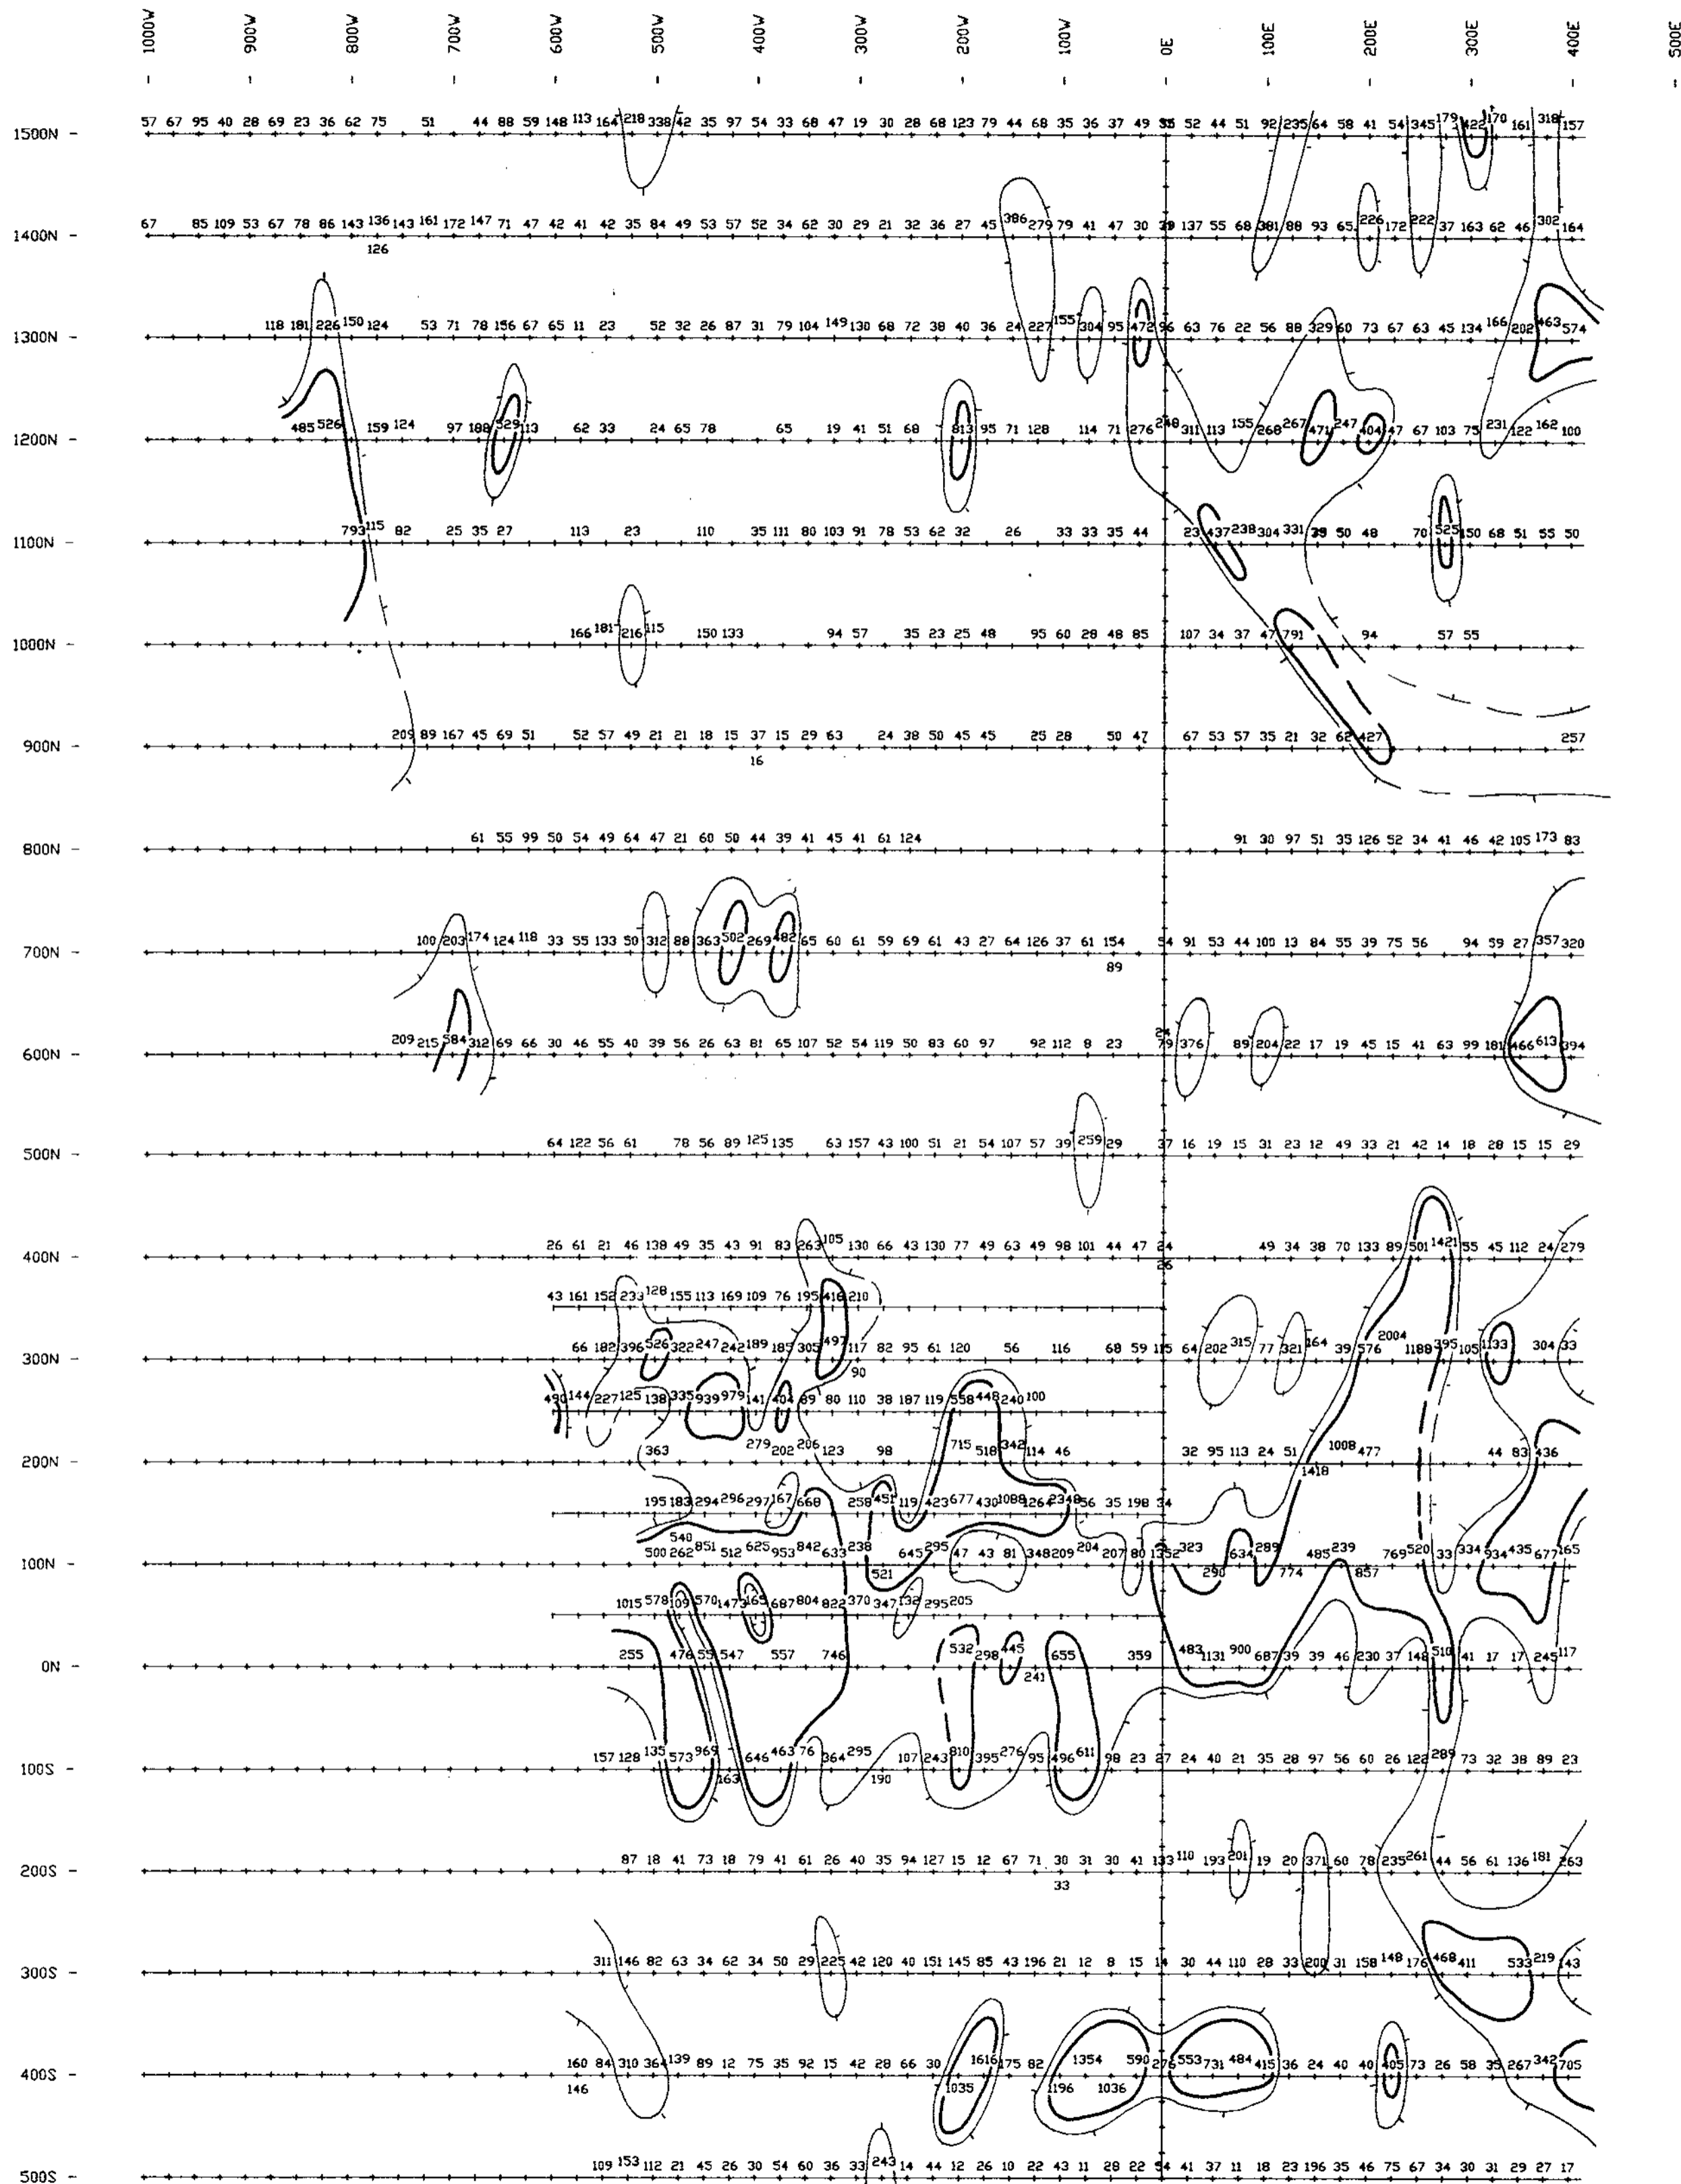 1000W 900W 800W 700W 600W 500W 400W 300W 200W 100W 0E 100E 200E 300E 400E 500E
1500N 57 67 95 40 28 69 23 36 62 75 51 44 88 59 148 113 164 218 338 42 35 97 54 33 68 47 19 30 28 68 123 79 44 68 35 36 37 49 52 44 51 92 235 64 58 41 54 345 179 422 170 161 318 157
1400N 67 85 109 53 67 78 86 143 136 143 161 172 147 71 47 42 41 42 35 84 49 53 57 52 34 62 30 29 21 32 36 27 45 386 279 79 41 47 30 137 55 68 381 88 93 65 226 172 222 37 163 62 46 302 164
126
1300N 118 181 226 150 124 53 71 78 156 67 65 11 23 52 32 26 87 31 79 104 149 130 68 72 38 40 36 24 227 155 304 95 472 96 63 76 22 56 88 329 60 73 67 63 45 134 166 202 463 574
1200N 485 526 159 124 97 188 529 113 62 33 24 65 78 65 19 41 51 68 813 95 71 128 114 71 276 248 311 113 155 268 267 471 247 404 47 67 103 75 231 122 162 100
1100N 793 115 82 25 35 27 113 23 110 35 111 80 103 91 78 53 62 32 26 33 33 35 44 23 437 238 304 331 50 48 70 525 150 68 51 55 50
1000N 166 181 216 115 150 133 94 57 35 23 25 48 95 60 28 48 85 107 34 37 47 791 94 57 55
900N 209 89 167 45 69 51 52 57 49 21 21 18 15 37 15 29 63 24 38 50 45 45 25 28 50 47 67 53 57 35 21 32 62 427 257
16
800N 61 55 99 50 54 49 64 47 21 60 50 44 39 41 45 41 61 124 91 30 97 51 35 126 52 34 41 46 42 105 173 83
700N 100 203 174 124 118 33 55 133 50 312 88 363 502 269 482 65 60 61 59 69 61 43 27 64 126 37 61 154 54 91 53 44 100 13 84 55 39 75 56 94 59 27 357 320
89
24
600N 209 215 584 312 69 66 30 46 55 40 39 56 26 63 81 65 107 52 54 119 50 83 60 97 92 112 8 23 79 376 89 204 22 17 19 45 15 41 63 99 181 466 613 394
500N 64 122 56 61 78 56 89 125 135 63 157 43 100 51 21 54 107 57 39 259 29 37 16 19 15 31 23 12 49 33 21 42 14 18 28 15 15 29
400N 26 61 21 46 138 49 35 43 91 83 263 105 130 66 43 130 77 49 63 49 98 101 44 47 24 49 34 38 70 133 89 501 1421 55 45 112 24 279
26
43 161 152 233 128 155 113 169 109 76 195 416 210
300N 66 182 396 526 322 247 242 189 185 305 497 117 82 95 61 120 56 116 68 59 115 64 202 315 77 321 164 39 576 2004 1188 395 105 1133 304 33
90
490 144 227 125 138 335 939 979 141 404 89 80 110 38 187 119 558 448 240 100
200N 363 279 202 206 123 98 715 518 342 114 46 32 95 113 24 51 1008 477 44 83 436
1418
195 183 294 296 297 167 668 258 451 119 423 677 430 1088 1264 2348 56 35 198 34
540
100N 500 262 851 512 625 953 842 633 238 645 295 47 43 81 348 209 204 207 80 1352 323 634 289 485 239 769 520 33 334 934 435 677 165
521 290 774 857
1015 578 109 570 1473 165 687 804 822 370 347 132 295 205
0N 255 476 55 547 557 746 532 298 445 655 359 483 1131 900 687 39 39 46 230 37 148 510 41 17 17 245 117
241
100S 157 128 135 573 969 646 463 76 364 295 107 243 810 395 276 95 496 611 98 23 27 24 40 21 35 28 97 56 60 26 122 289 73 32 38 89 23
163 190
200S 87 18 41 73 18 79 41 61 26 40 35 94 127 15 12 67 71 30 31 30 41 133 110 193 201 19 20 371 60 78 235 261 44 56 61 136 181 263
33
300S 311 146 82 63 34 62 34 50 29 225 42 120 40 151 145 85 43 196 21 12 8 15 14 30 44 110 28 33 200 31 158 148 176 468 411 533 219 143
400S 160 84 310 364 139 89 12 75 35 92 15 42 28 66 30 1616 175 82 1354 590 276 553 731 484 415 36 24 40 40 405 73 26 58 35 267 342 705
146 1035 1196 1036
500S 109 153 112 21 45 26 30 54 60 36 33 243 14 44 12 26 10 22 43 11 28 22 54 41 37 11 18 23 196 35 46 75 67 34 30 31 29 27 17